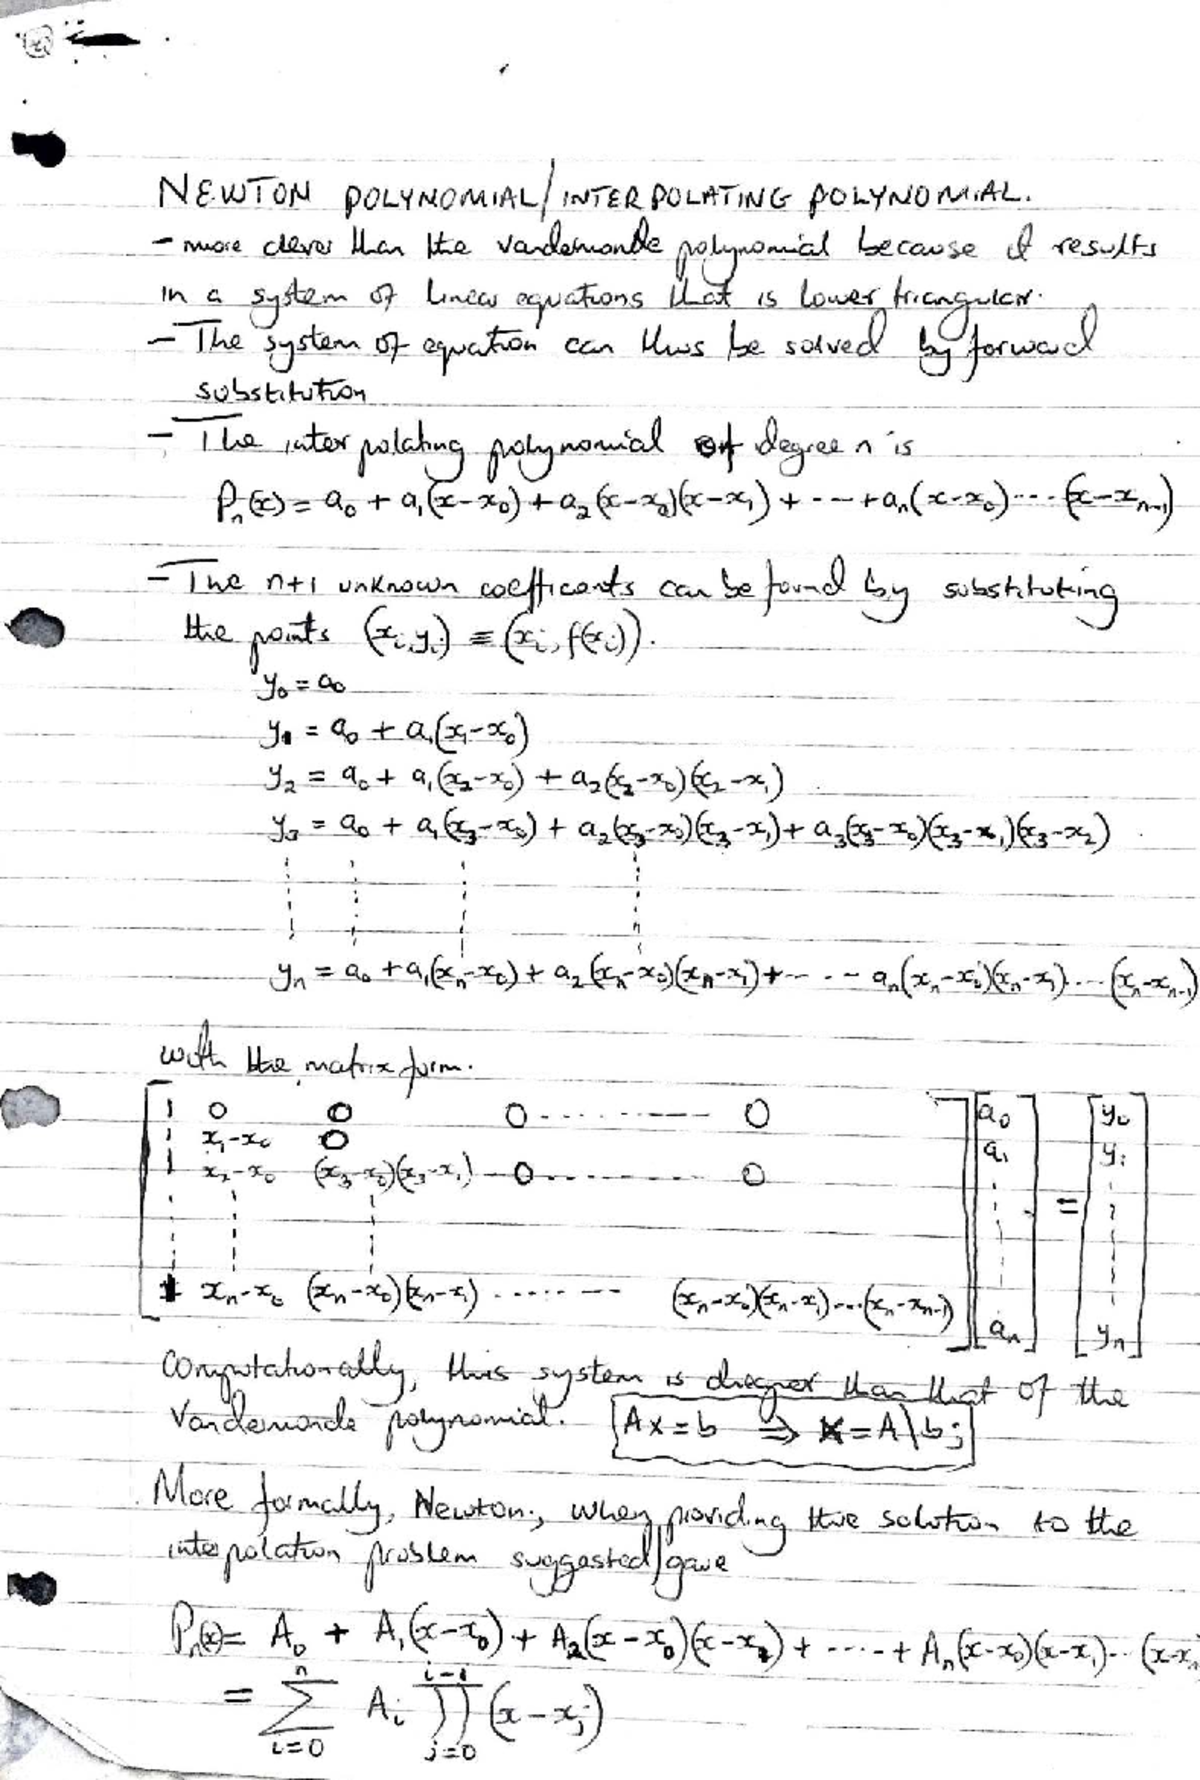 NEWTON POLYNOMIAL/INTERPOLATING POLYNOMIAL.
- more clever than the vandemonde polynomial because it results
in a system of linear equations that is lower triangular.
- The system of equation can thus be solved by forward
substitution
- The interpolating polynomial of degree n is
Pₙ(x) = a₀ + a₁(x-x₀) + a₂(x-x₀)(x-x₁) + ---- + aₙ(x-x₀)----(x-xₙ₋₁)
- The n+1 unknown coefficents can be found by substituting
the points (xᵢ,yᵢ) ≡ (xᵢ, f(xᵢ)).
y₀ = a₀
y₁ = a₀ + a₁(x₁-x₀)
y₂ = a₀ + a₁(x₂-x₀) + a₂(x₂-x₀)(x₂-x₁)
y₃ = a₀ + a₁(x₃-x₀) + a₂(x₃-x₀)(x₃-x₁) + a₃(x₃-x₀)(x₃-x₁)(x₃-x₂)
yₙ = a₀ + a₁(xₙ-x₀) + a₂(xₙ-x₀)(xₙ-x₁) + -- . -- aₙ(xₙ-x₀)(xₙ-x₁)....(xₙ-xₙ₋₁)
with the matrix form.
1 0 0 0 --------- 0 a₀ y₀
1 x₁-x₀ 0 a₁ y₁
1 x₂-x₀ (x₃-x₀)(x₃-x₁) - 0 --------- 0 =
1 xₙ-x₀ (xₙ-x₀)(xₙ-x₁) -------- (xₙ-x₀)(xₙ-x₁)----(xₙ-xₙ₋₁) aₙ yₙ
Computationally, this system is cheaper than that of the
Vandemonde polynomial. Ax = b ⇒ x = A\b;
More formally, Newton, when providing the solution to the
interpolation problem suggested/gave
Pₙ(x) = A₀ + A₁(x-x₀) + A₂(x-x₀)(x-x₁) + ---- + Aₙ(x-x₀)(x-x₁)--(x-xₙ
= ∑ᵢ₌₀ⁿ Aᵢ ∏ⱼ₌₀ⁱ⁻¹ (x-xⱼ)